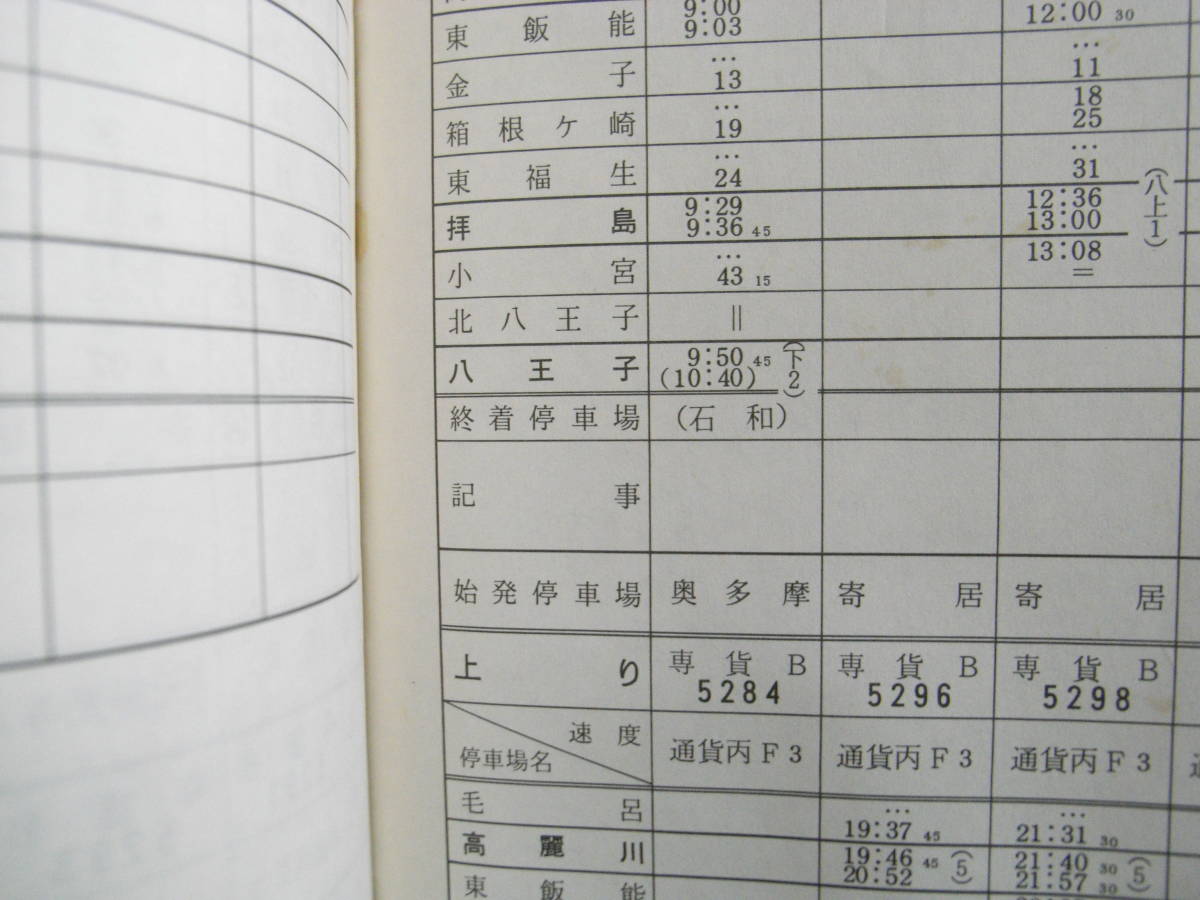 9:00
12:00 30
東飯能 9:03
…
…
金子 13 11
…
18
箱根ケ崎 19 25
…
…
東福生 24 31
9:29 12:36
拝島 9:36 45 13:00 (八上1)
… 13:08
小宮 43 15 =
北八王子 ||
9:50 45
八王子 (10:40) (下2)
終着停車場 (石和)
記事
始発停車場 奥多摩 寄居 寄居
上り 専貨B 専貨B 専貨B
5284 5296 5298
速度
停車場名 通貨丙F3 通貨丙F3 通貨丙F3
… …
毛呂 19:37 45 21:31 30
19:46 45 21:40 30
高麗川 20:52 (5) 21:57 30 (5)
東飯能